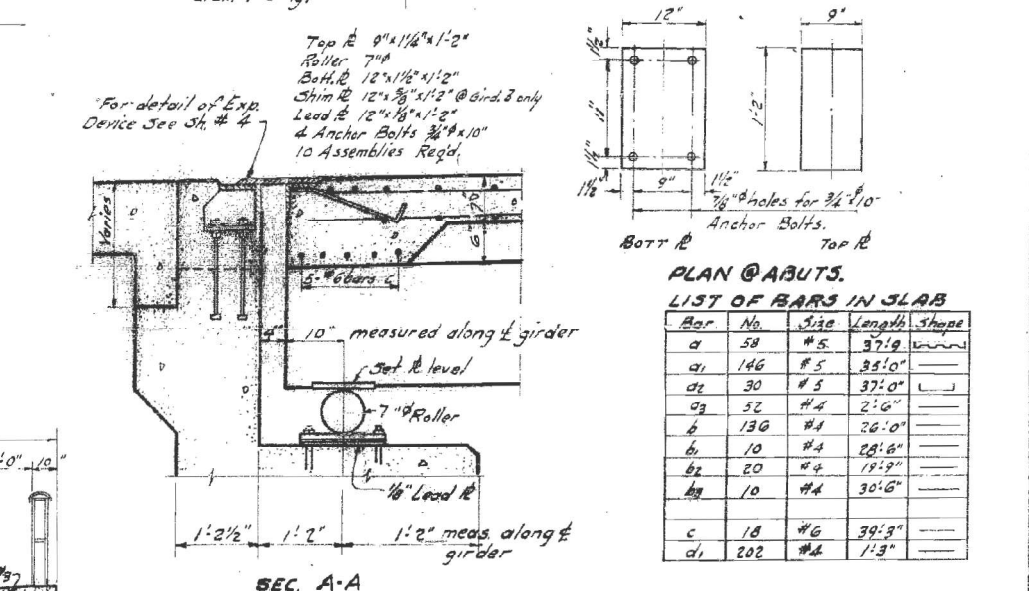 Top ℞ 9"x1¼"x1'-2"
Roller 7"ᶲ
Bott. ℞ 12"x1½"x1'-2"
Shim ℞ 12"x⅝"x1'-2" @ Gird. 3 only
Lead ℞ 12"x⅛"x1'-2"
4 Anchor Bolts ¾"ᶲx10"
10 Assemblies Req'd.
For detail of Exp.
Device See Sh. # 4
Varies
5-#6 bars c
4" 10" measured along ℄ girder
Set ℞ level
7"ᶲ Roller
⅛" Lead ℞
1'-2½" 1'-2" 1'-2" meas. along ℄
girder
SEC. A-A
10"
12" 9"
1½"
11"
1½"
1'-2"
1½" 9" 1½"
⅞"ᶲ holes for ¾"ᶲ 10"
Anchor Bolts.
BOTT ℞ TOP ℞
PLAN @ ABUTS.
LIST OF BARS IN SLAB
Bar No. Size Length Shape
a 58 #5 37'-9
a1 146 #5 35'-0"
a2 30 #5 37'-0"
a3 52 #4 2'-6"
b 136 #4 26'-0"
b1 10 #4 28'-6"
b2 20 #4 19'-9"
b3 10 #4 30'-6"
c 18 #6 39'-3"
d1 202 #4 1'-3"